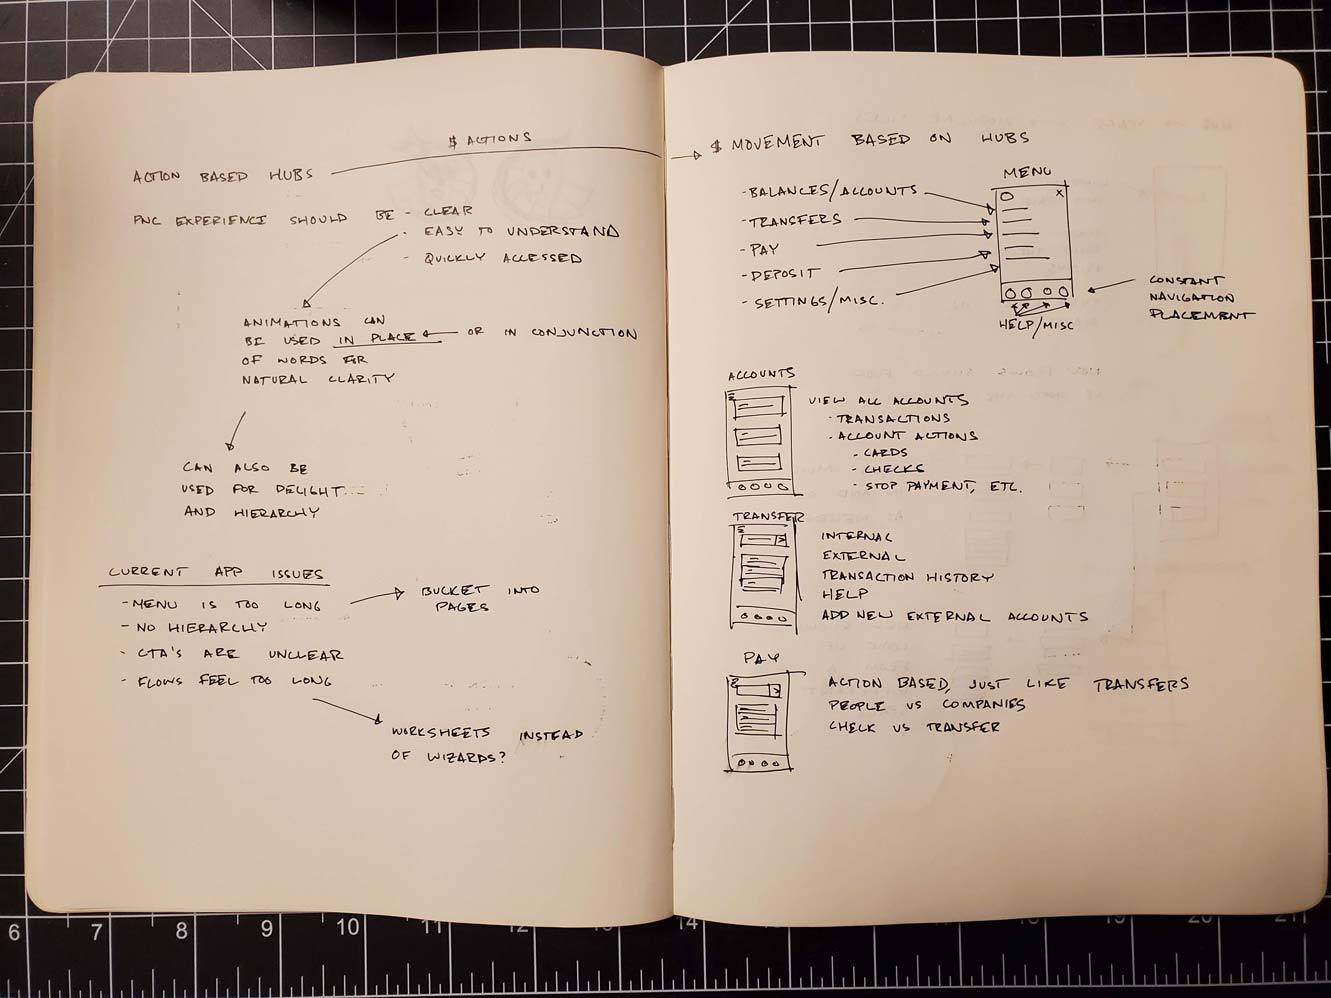 $ ACTIONS
ACTION BASED HUBS
PNC EXPERIENCE SHOULD BE - CLEAR
- EASY TO UNDERSTAND
- QUICKLY ACCESSED
ANIMATIONS CAN
BE USED IN PLACE OR IN CONJUNCTION
OF WORDS FOR
NATURAL CLARITY
CAN ALSO BE
USED FOR DELIGHT
AND HIERARCHY
CURRENT APP ISSUES
- MENU IS TOO LONG
BUCKET INTO
PAGES
- NO HIERARCHY
- CTA'S ARE UNCLEAR
- FLOWS FEEL TOO LONG
WORKSHEETS INSTEAD
OF WIZARDS?
$ MOVEMENT BASED ON HUBS
MENU
X
- BALANCES/ACCOUNTS
- TRANSFERS
- PAY
- DEPOSIT
- SETTINGS/MISC.
CONSTANT
NAVIGATION
PLACEMENT
HELP/MISC
ACCOUNTS
VIEW ALL ACCOUNTS
- TRANSACTIONS
- ACCOUNT ACTIONS
- CARDS
- CHECKS
- STOP PAYMENT, ETC.
TRANSFER
INTERNAL
EXTERNAL
TRANSACTION HISTORY
HELP
ADD NEW EXTERNAL ACCOUNTS
PAY
ACTION BASED, JUST LIKE TRANSFERS
PEOPLE VS COMPANIES
CHECK VS TRANSFER
6 7 8 9 10 11 12 13 14 20 21